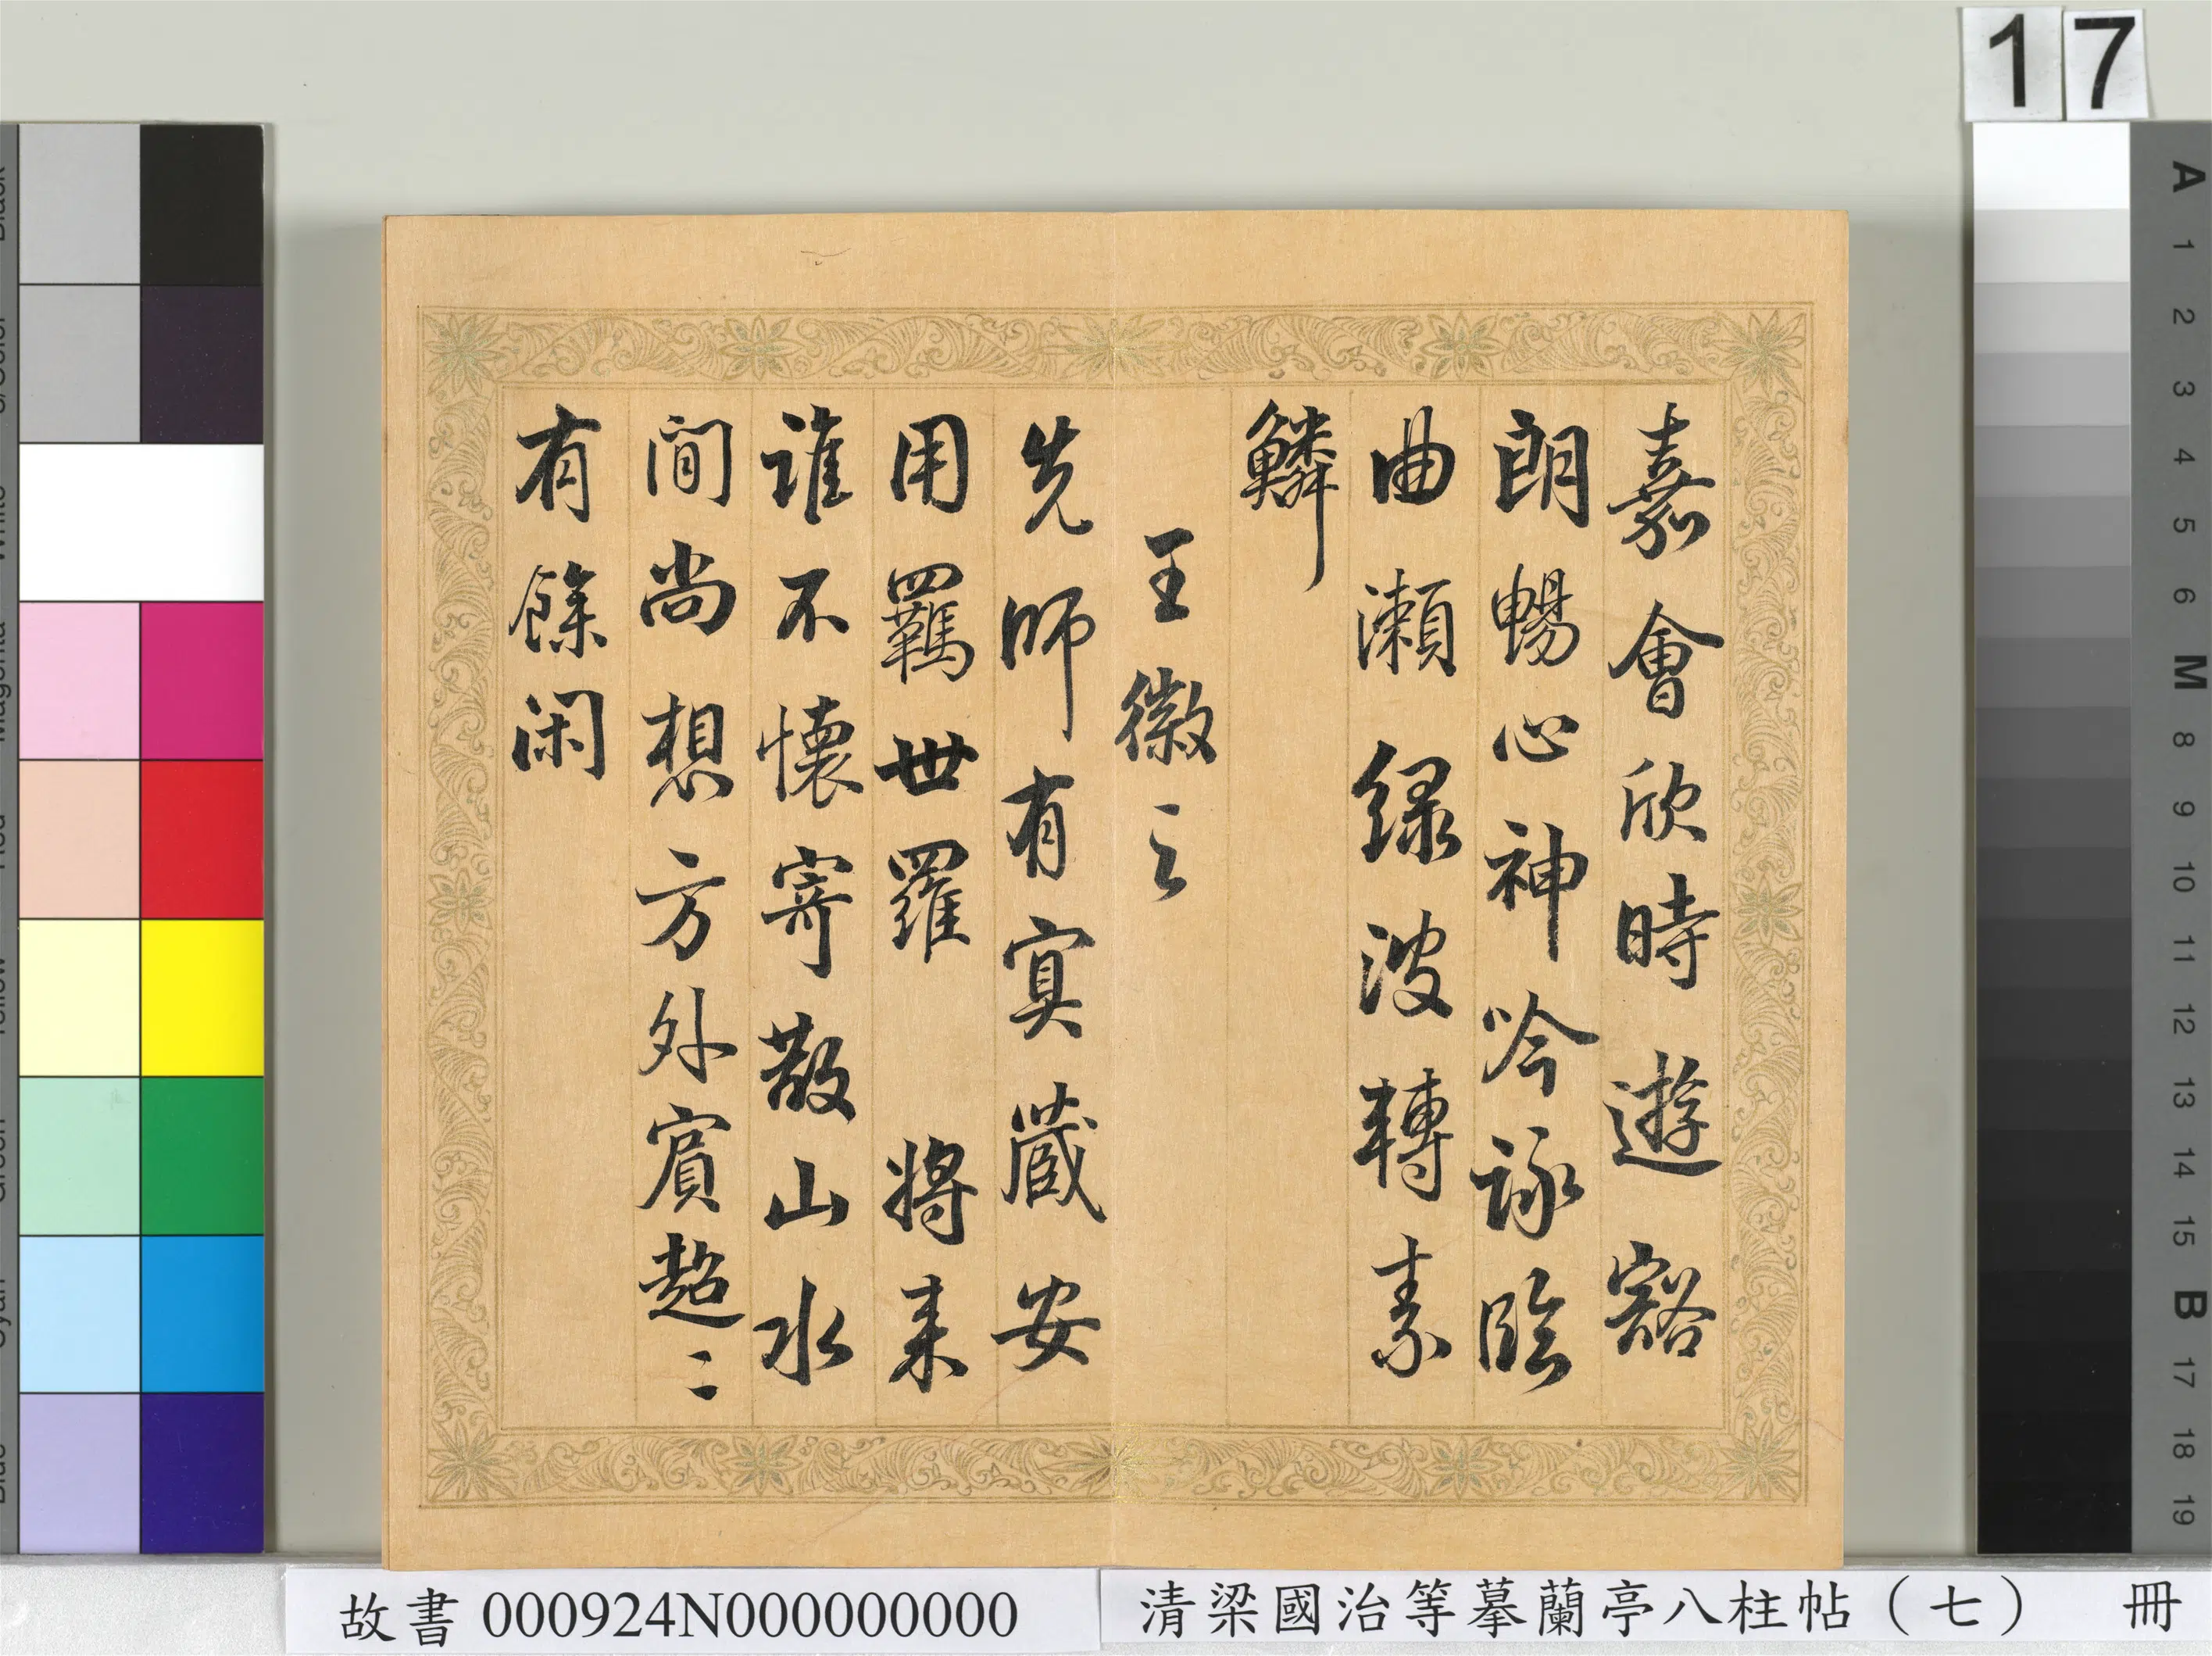 嘉會欣時遊豁
朗暢心神吟詠臨
曲瀨緑波轉素
鱗
王徽之
先師有寘藏安
用羈世羅 將来
誰不懷寄散山水
間尚想方外賔超〻
有餘闲
17
故書 000924N000000000
清梁國治等摹蘭亭八柱帖（七） 冊
A
1
2
3
4
5
6
M
8
9
10
11
12
13
14
15
B
17
18
19